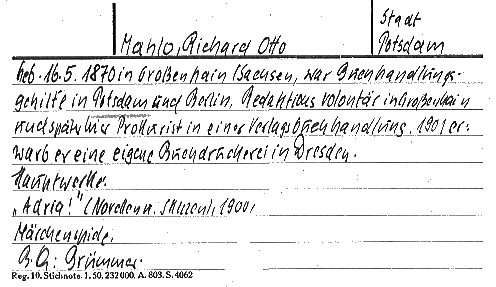 Stadt
Mahlo, Richard Otto Potsdam
geb. 16.5. 1870 in Großenhain (Sachsen, war Buchhandlungs-
gehilfe in Potsdam und Berlin, Redaktions volontär in Großenhain
und später hier Prokurist in einer Verlagsbuchhandlung, 1901 er-
warb er eine eigene Buchdruckerei in Dresden.
Hauptwerke:
„Adria!" (Novellen u. Skizzen), 1900,
Märchenspiele.
B.Q: Brümmer.
Reg. 10. Stichnote. 1. 50. 232000. A. 803. S. 4062